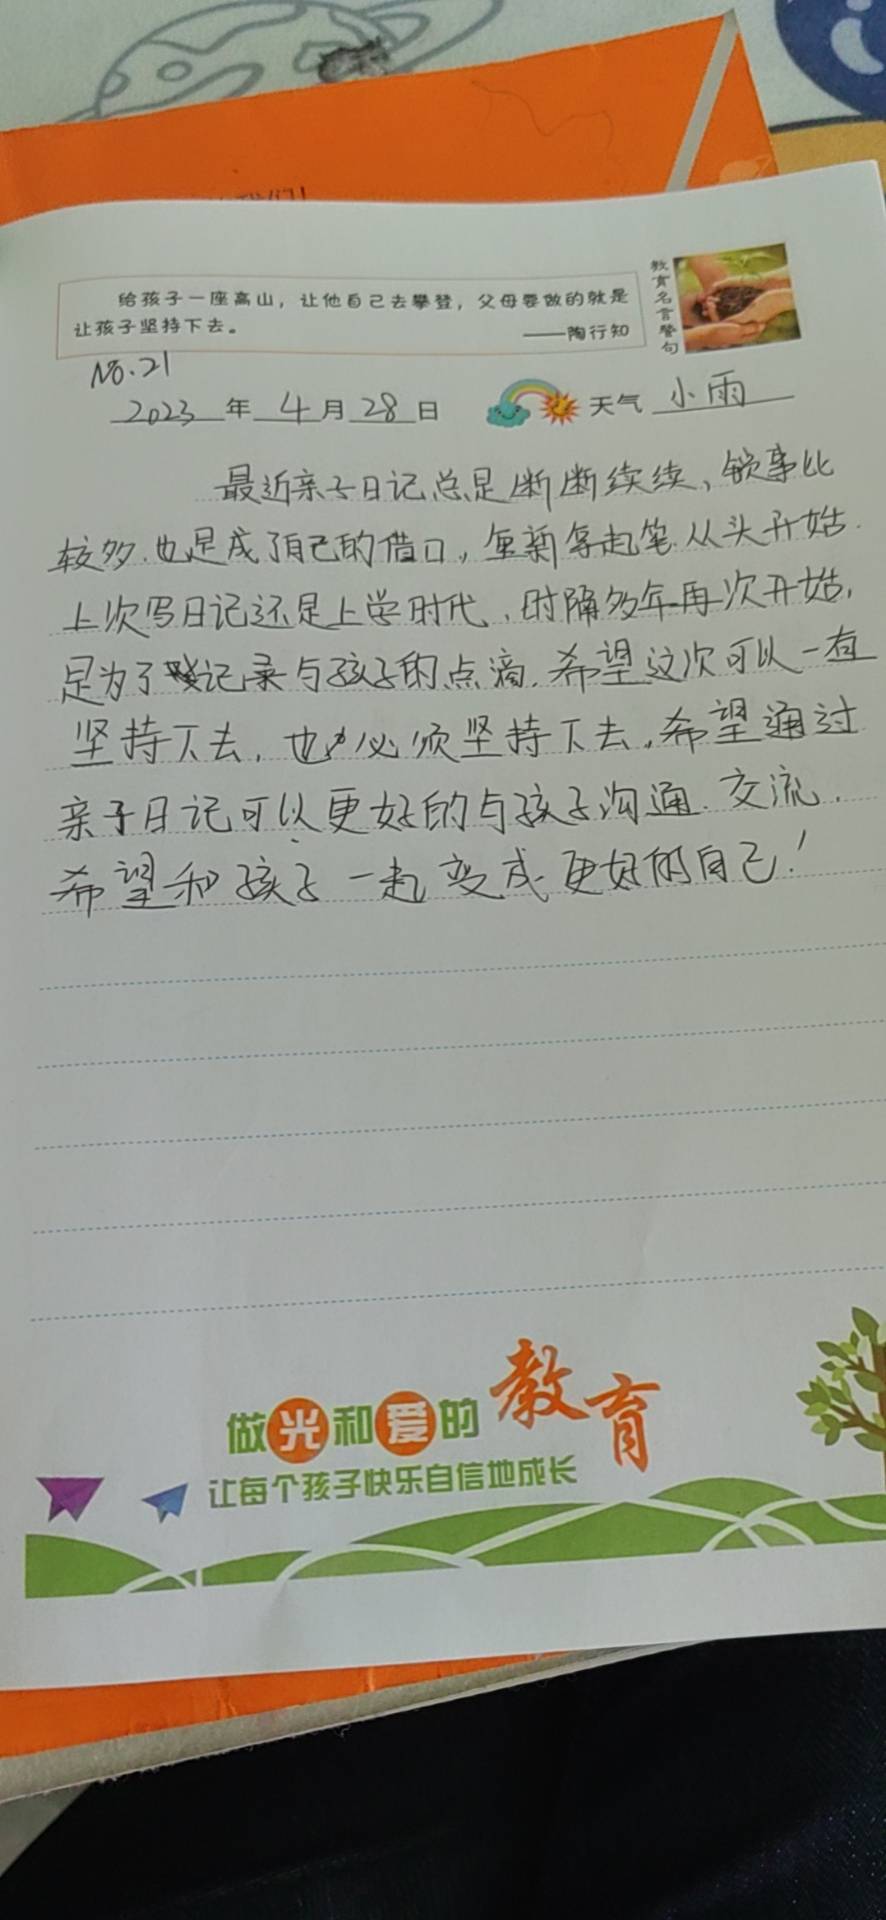 给孩子一座高山，让他自己去攀登，父母要做的就是
让孩子坚持下去。
——陶行知
教育名言警句
No.21
2023年4月28日 天气 小雨
最近亲子日记总是断断续续、锁事比
较多.也是成了自己的借口，重新拿起笔.从头开始.
上次写日记还是上学时代，时隔多年再次开始，
是为了记录与孩子的点滴.希望这次可以一直
坚持下去，也必须坚持下去，希望通过
亲子日记可以更好的与孩子沟通.交流.
希望和孩子一起变成更好的自己！
做光和爱的教育
让每个孩子快乐自信地成长